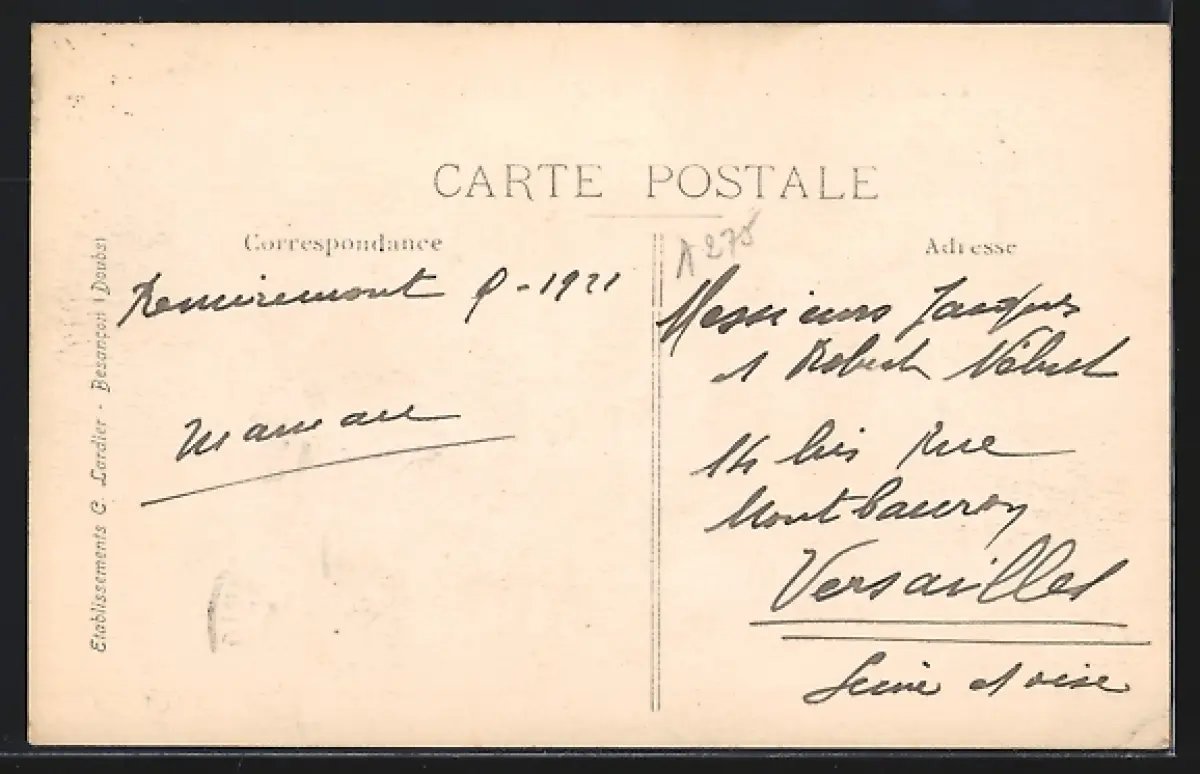 CARTE POSTALE
Correspondance
Adresse
A 275
Remiremont 9-1921
maman
Messieurs Jacques
et Robert
14 bis Rue
Montbauron
Versailles
Seine et oise
Etablissements C. Lardier - Besançon (Doubs)